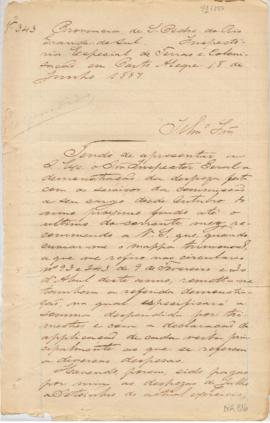 Nº 343
Provincia de S. Pedro do Rio
Grande do Sul. Inspecto-
ria Especial de Terras e Coloni-
sação em Porto Alegre 18 de
Junho 1887
Illmo Snr
Tendo de apresentar a
S. Exª o Snr Inspector Geral a
demonstração da despeza feita
com os serviços da commissão
a seu cargo desde Outubro do
anno proximo findo até o
ultimo do corrente mez re-
commendo a V. Sª que, quando
enviar-me o mappa trimensal,
a que me refiro nas circulares
nos 93 e 243 de 9 de Fevereiro e
d'Abril deste anno, remetta-me
tambem a referida demonstra-
ção, na qual especificará a
somma despendida por tri-
mestres e com a declaração da
applicação de cada verba prin-
cipalmente as que se referem
a diversas despezas.
Havendo, porem, sido pagas
por mim as despezas de Julho
a Dezembro do actual exercicio,